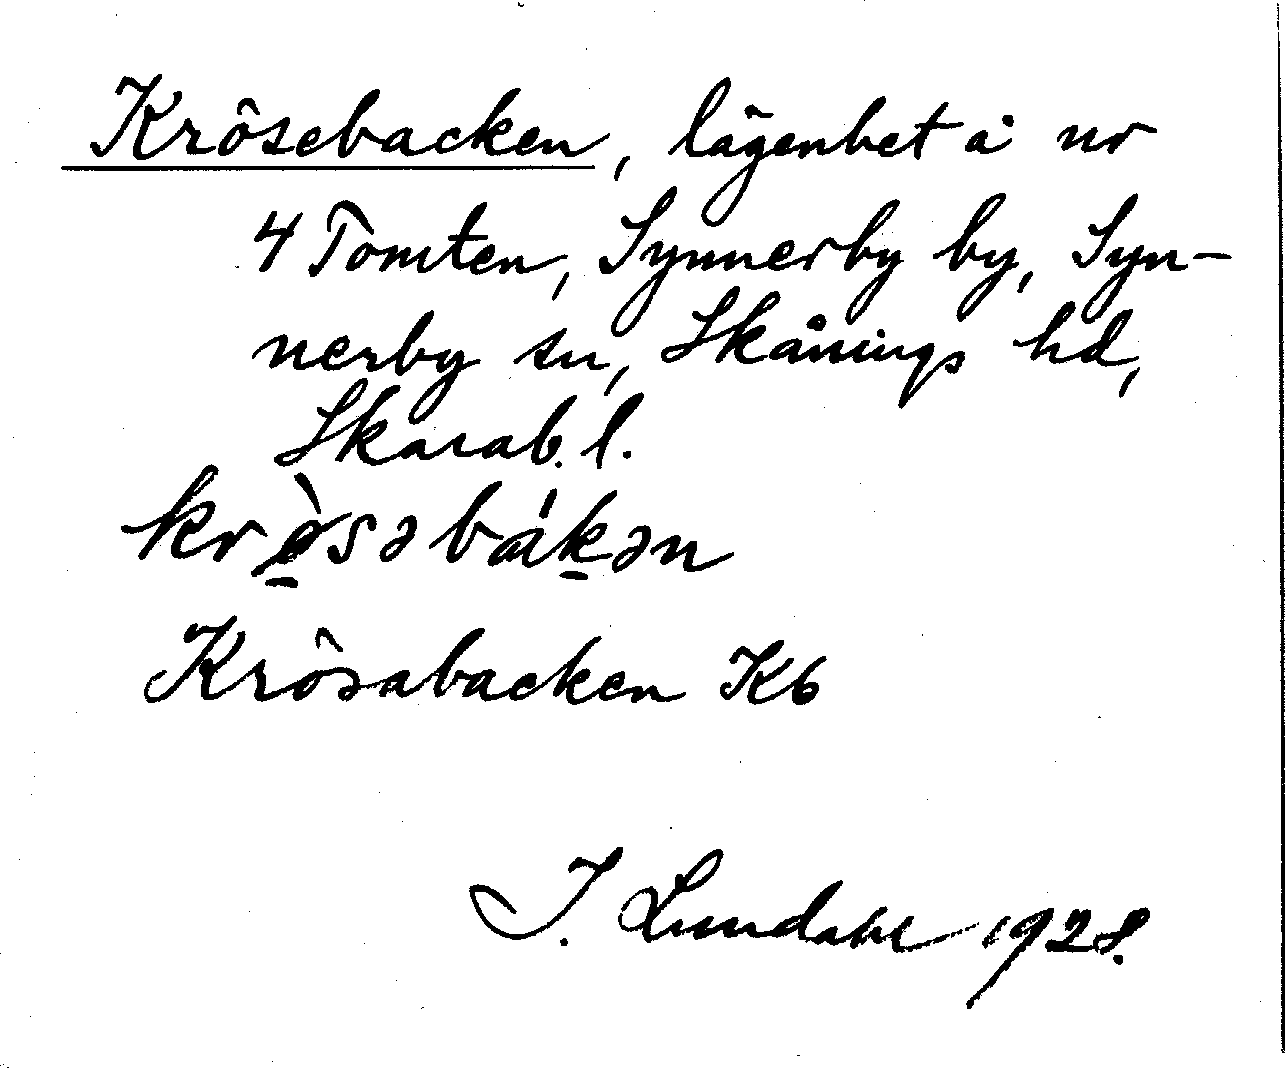 Krösebacken, lägenhet å nr
4 Tomten, Synnerby by, Syn-
nerby sn, Skånings hd,
Skarab. l.
krø̀səbákən
Krösabacken Kb
I. Lundahl 1928.